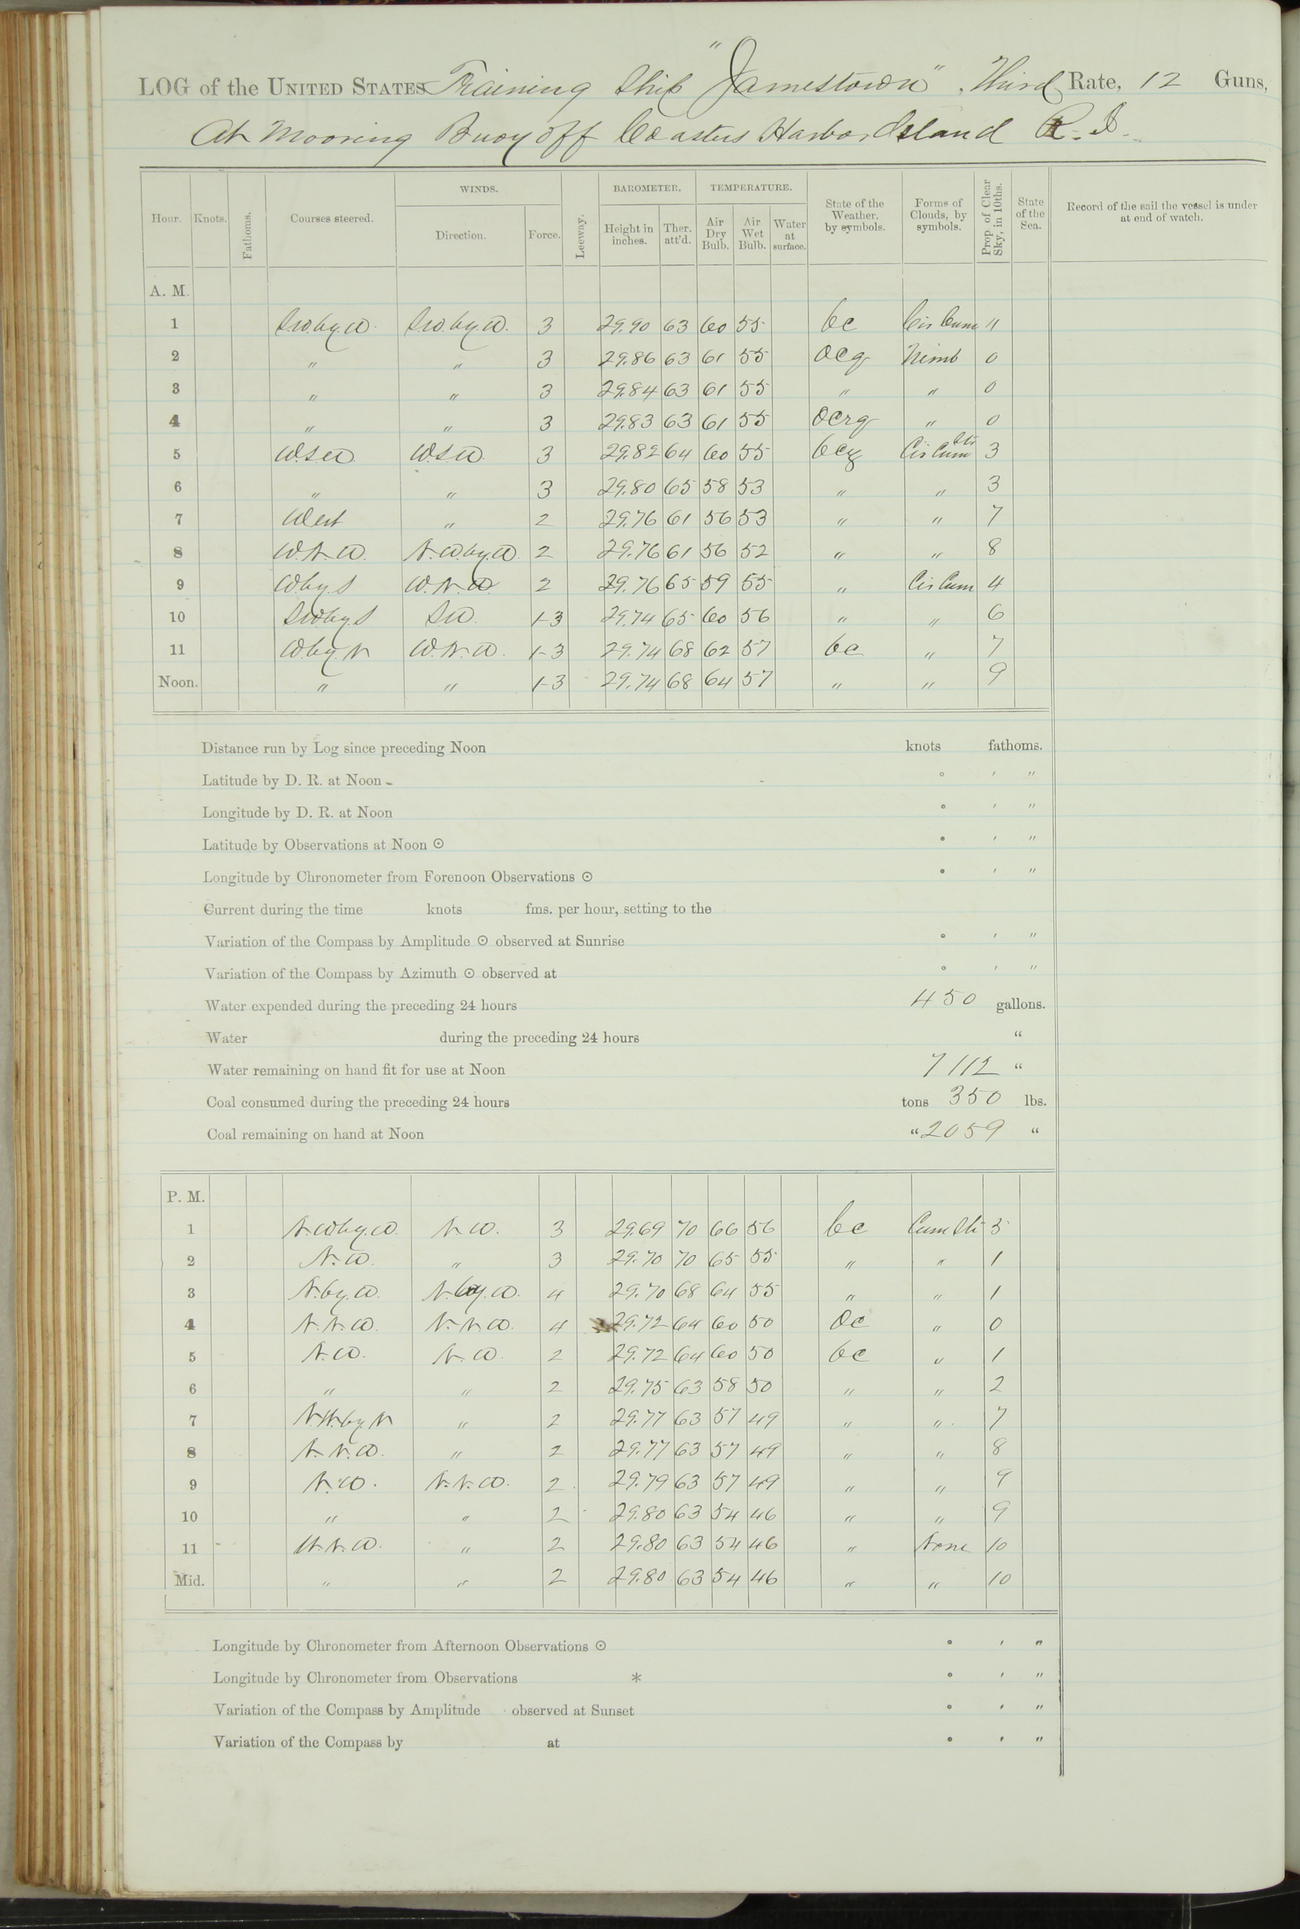 LOG of the UNITED STATES Training Ship "Jamestown", Third Rate, 12 Guns,
At Mooring Buoy off Coasters Harbor Island R. I.
Hour. Knots. Fathoms. Courses steered. WINDS. Direction. Force. Leeway. BAROMETER. Height in inches. Ther. att'd. TEMPERATURE. Air Dry Bulb. Air Wet Bulb. Water at surface. State of the Weather, by symbols. Forms of Clouds, by symbols. Prop. of Clear Sky, in 10ths. State of the Sea. Record of the sail the vessel is under at end of watch.
A. M.
1 SW by W. SW by W. 3 29.90 63 60 55 bc Cir Cum "
2 " " 3 29.86 63 61 55 ocq Nimb 0
3 " " 3 29.84 63 61 55 " " 0
4 " " 3 29.83 63 61 55 ocrq " 0
5 W.S.W W.S.W 3 29.82 64 60 55 bcq Cir Cum Str 3
6 " " 3 29.80 65 58 53 " " 3
7 West " 2 29.76 61 56 53 " " 7
8 W.N.W. N.W. by W. 2 29.76 61 56 52 " " 8
9 W by S W.N.W 2 29.76 65 59 55 " Cir Cum 4
10 SW by S SW. 1-3 29.74 65 60 56 " " 6
11 W by N W.N.W. 1-3 29.74 68 62 57 bc " 7
Noon. " " 1-3 29.74 68 64 57 " " 9
Distance run by Log since preceding Noon knots fathoms.
Latitude by D. R. at Noon ° ′ ″
Longitude by D. R. at Noon ° ′ ″
Latitude by Observations at Noon ⊙ ° ′ ″
Longitude by Chronometer from Forenoon Observations ⊙ ° ′ ″
Current during the time knots fms. per hour, setting to the
Variation of the Compass by Amplitude ⊙ observed at Sunrise ° ′ ″
Variation of the Compass by Azimuth ⊙ observed at ° ′ ″
Water expended during the preceding 24 hours 450 gallons.
Water during the preceding 24 hours "
Water remaining on hand fit for use at Noon 7112 "
Coal consumed during the preceding 24 hours tons 350 lbs.
Coal remaining on hand at Noon " 2059 "
P. M.
1 N.W by W. N.W. 3 29.69 70 66 56 bc Cum Str 3
2 N.W. " 3 29.70 70 65 55 " " 1
3 N. by W. N. by W. 4 29.70 68 64 55 " " 1
4 N.N.W. N.N.W. 4 29.72 64 60 50 oc " 0
5 N.W. N.W. 2 29.72 64 60 50 bc " 1
6 " " 2 29.75 63 58 50 " " 2
7 N.W. by N " 2 29.77 63 57 49 " " 7
8 N.N.W. " 2 29.77 63 57 49 " " 8
9 N.W. N.N.W. 2 29.79 63 57 49 " " 9
10 " " 2 29.80 63 54 46 " " 9
11 N.N.W. " 2 29.80 63 54 46 " None 10
Mid. " " 2 29.80 63 54 46 " " 10
Longitude by Chronometer from Afternoon Observations ⊙ ° ′ ″
Longitude by Chronometer from Observations * ° ′ ″
Variation of the Compass by Amplitude observed at Sunset ° ′ ″
Variation of the Compass by at ° ′ ″